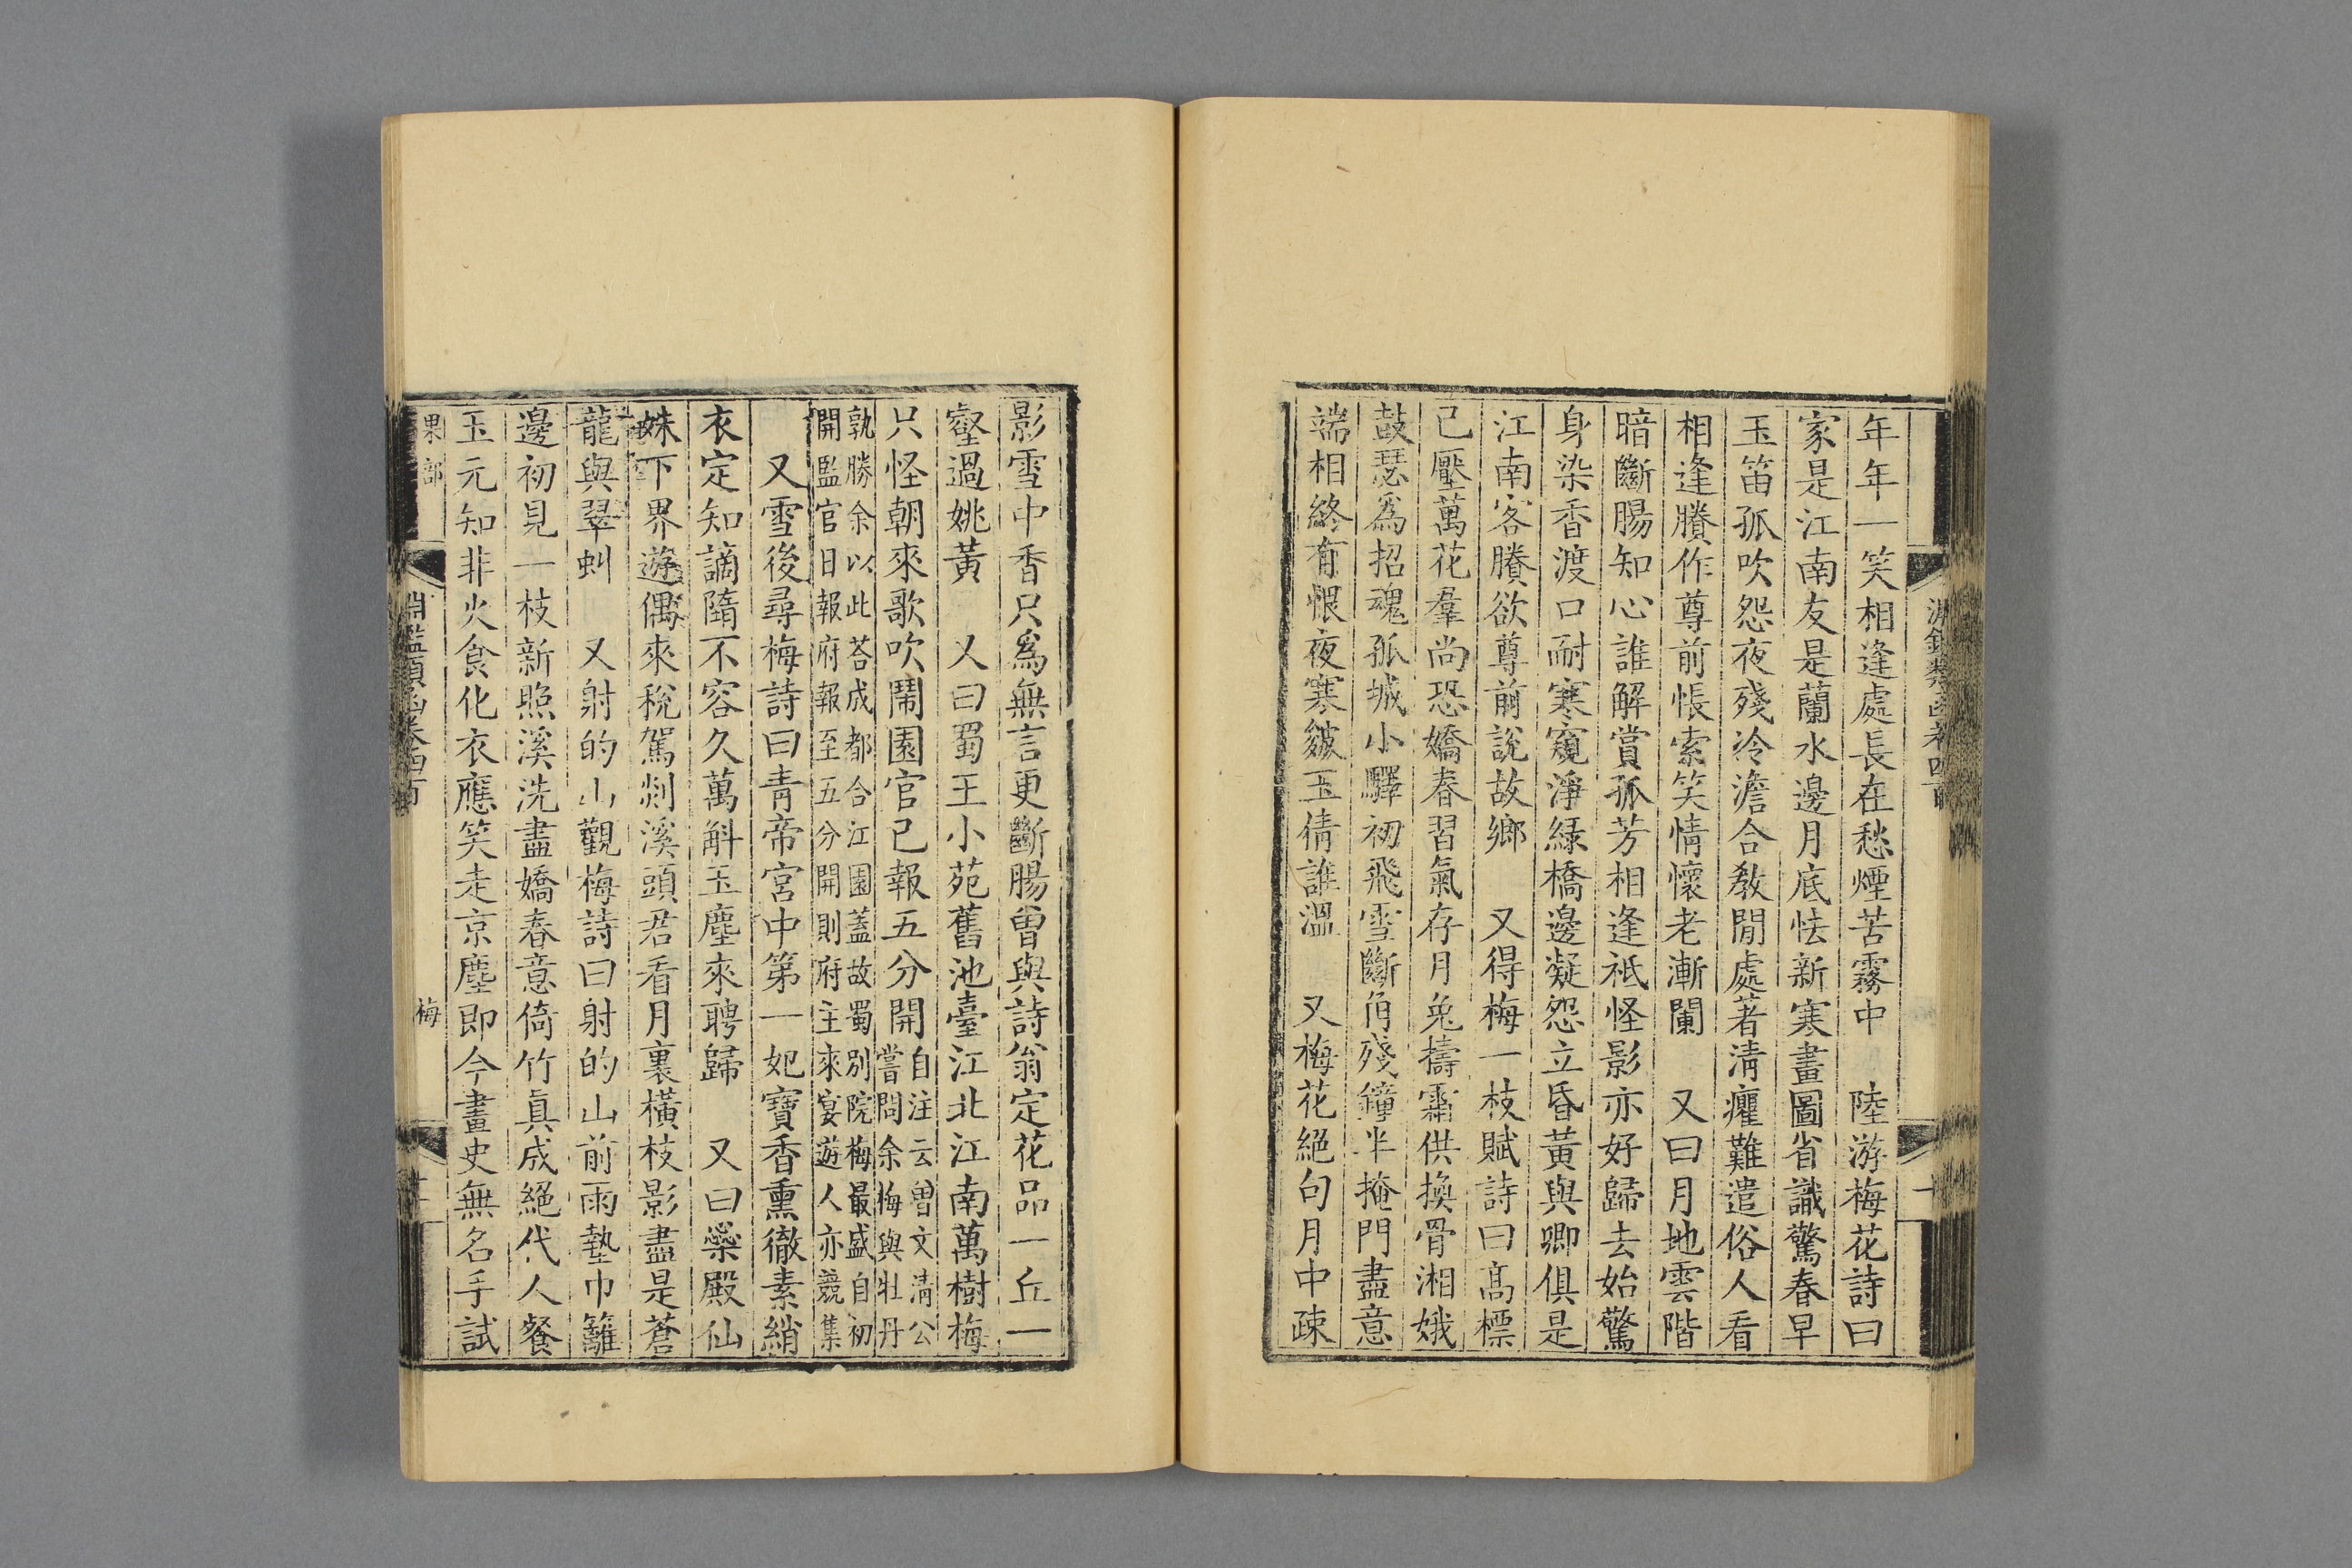 年年一笑相逢處長在愁煙苦霧中　陸游梅花詩曰
家是江南友是蘭水邊月底怯新寒畫圖省識驚春早
玉笛孤吹怨夜殘冷澹合敎閒處著淸癯難遣俗人看
相逢賸作尊前悵索笑情懷老漸闌　又曰月地雲階
暗斷腸知心誰解賞孤芳相逢祗怪影亦好歸去始驚
身染香渡口耐寒窺淨綠橋邊凝怨立昏黃與卿俱是
江南客賸欲尊前說故鄉　又得梅一枝賦詩曰髙標
已壓萬花羣尚恐嬌春習氣存月兔擣霜供換骨湘娥
鼓瑟爲招魂孤城小驛初飛雪斷角殘鐘半掩門盡意
端相終有恨夜寒皴玉倩誰溫　又梅花絕句月中疎
影雪中香只爲無言更斷腸曾與詩翁定花品一丘一
壑過姚黃　又曰蜀王小苑舊池臺江北江南萬樹梅
只怪朝來歌吹鬧園官已報五分開自注云曾文淸公嘗問余梅與牡丹
孰勝余以此荅成都合江園蓋故蜀別院梅最盛自初
開監官日報府報至五分開則府主來宴遊人亦競集
又雪後尋梅詩曰青帝宮中第一妃寶香熏徹素綃
衣定知謫墮不容久萬斛玉塵來聘歸　又曰蘂殿仙
姝下界遊偶來稅駕剡溪頭君看月裏橫枝影盡是蒼
龍與翠虯　又射的山觀梅詩曰射的山前雨墊巾籬
邊初見一枝新照溪洗盡嬌春意倚竹眞成絕代人餐
玉元知非火食化衣應笑走京塵即今畫史無名手試
果部
梅